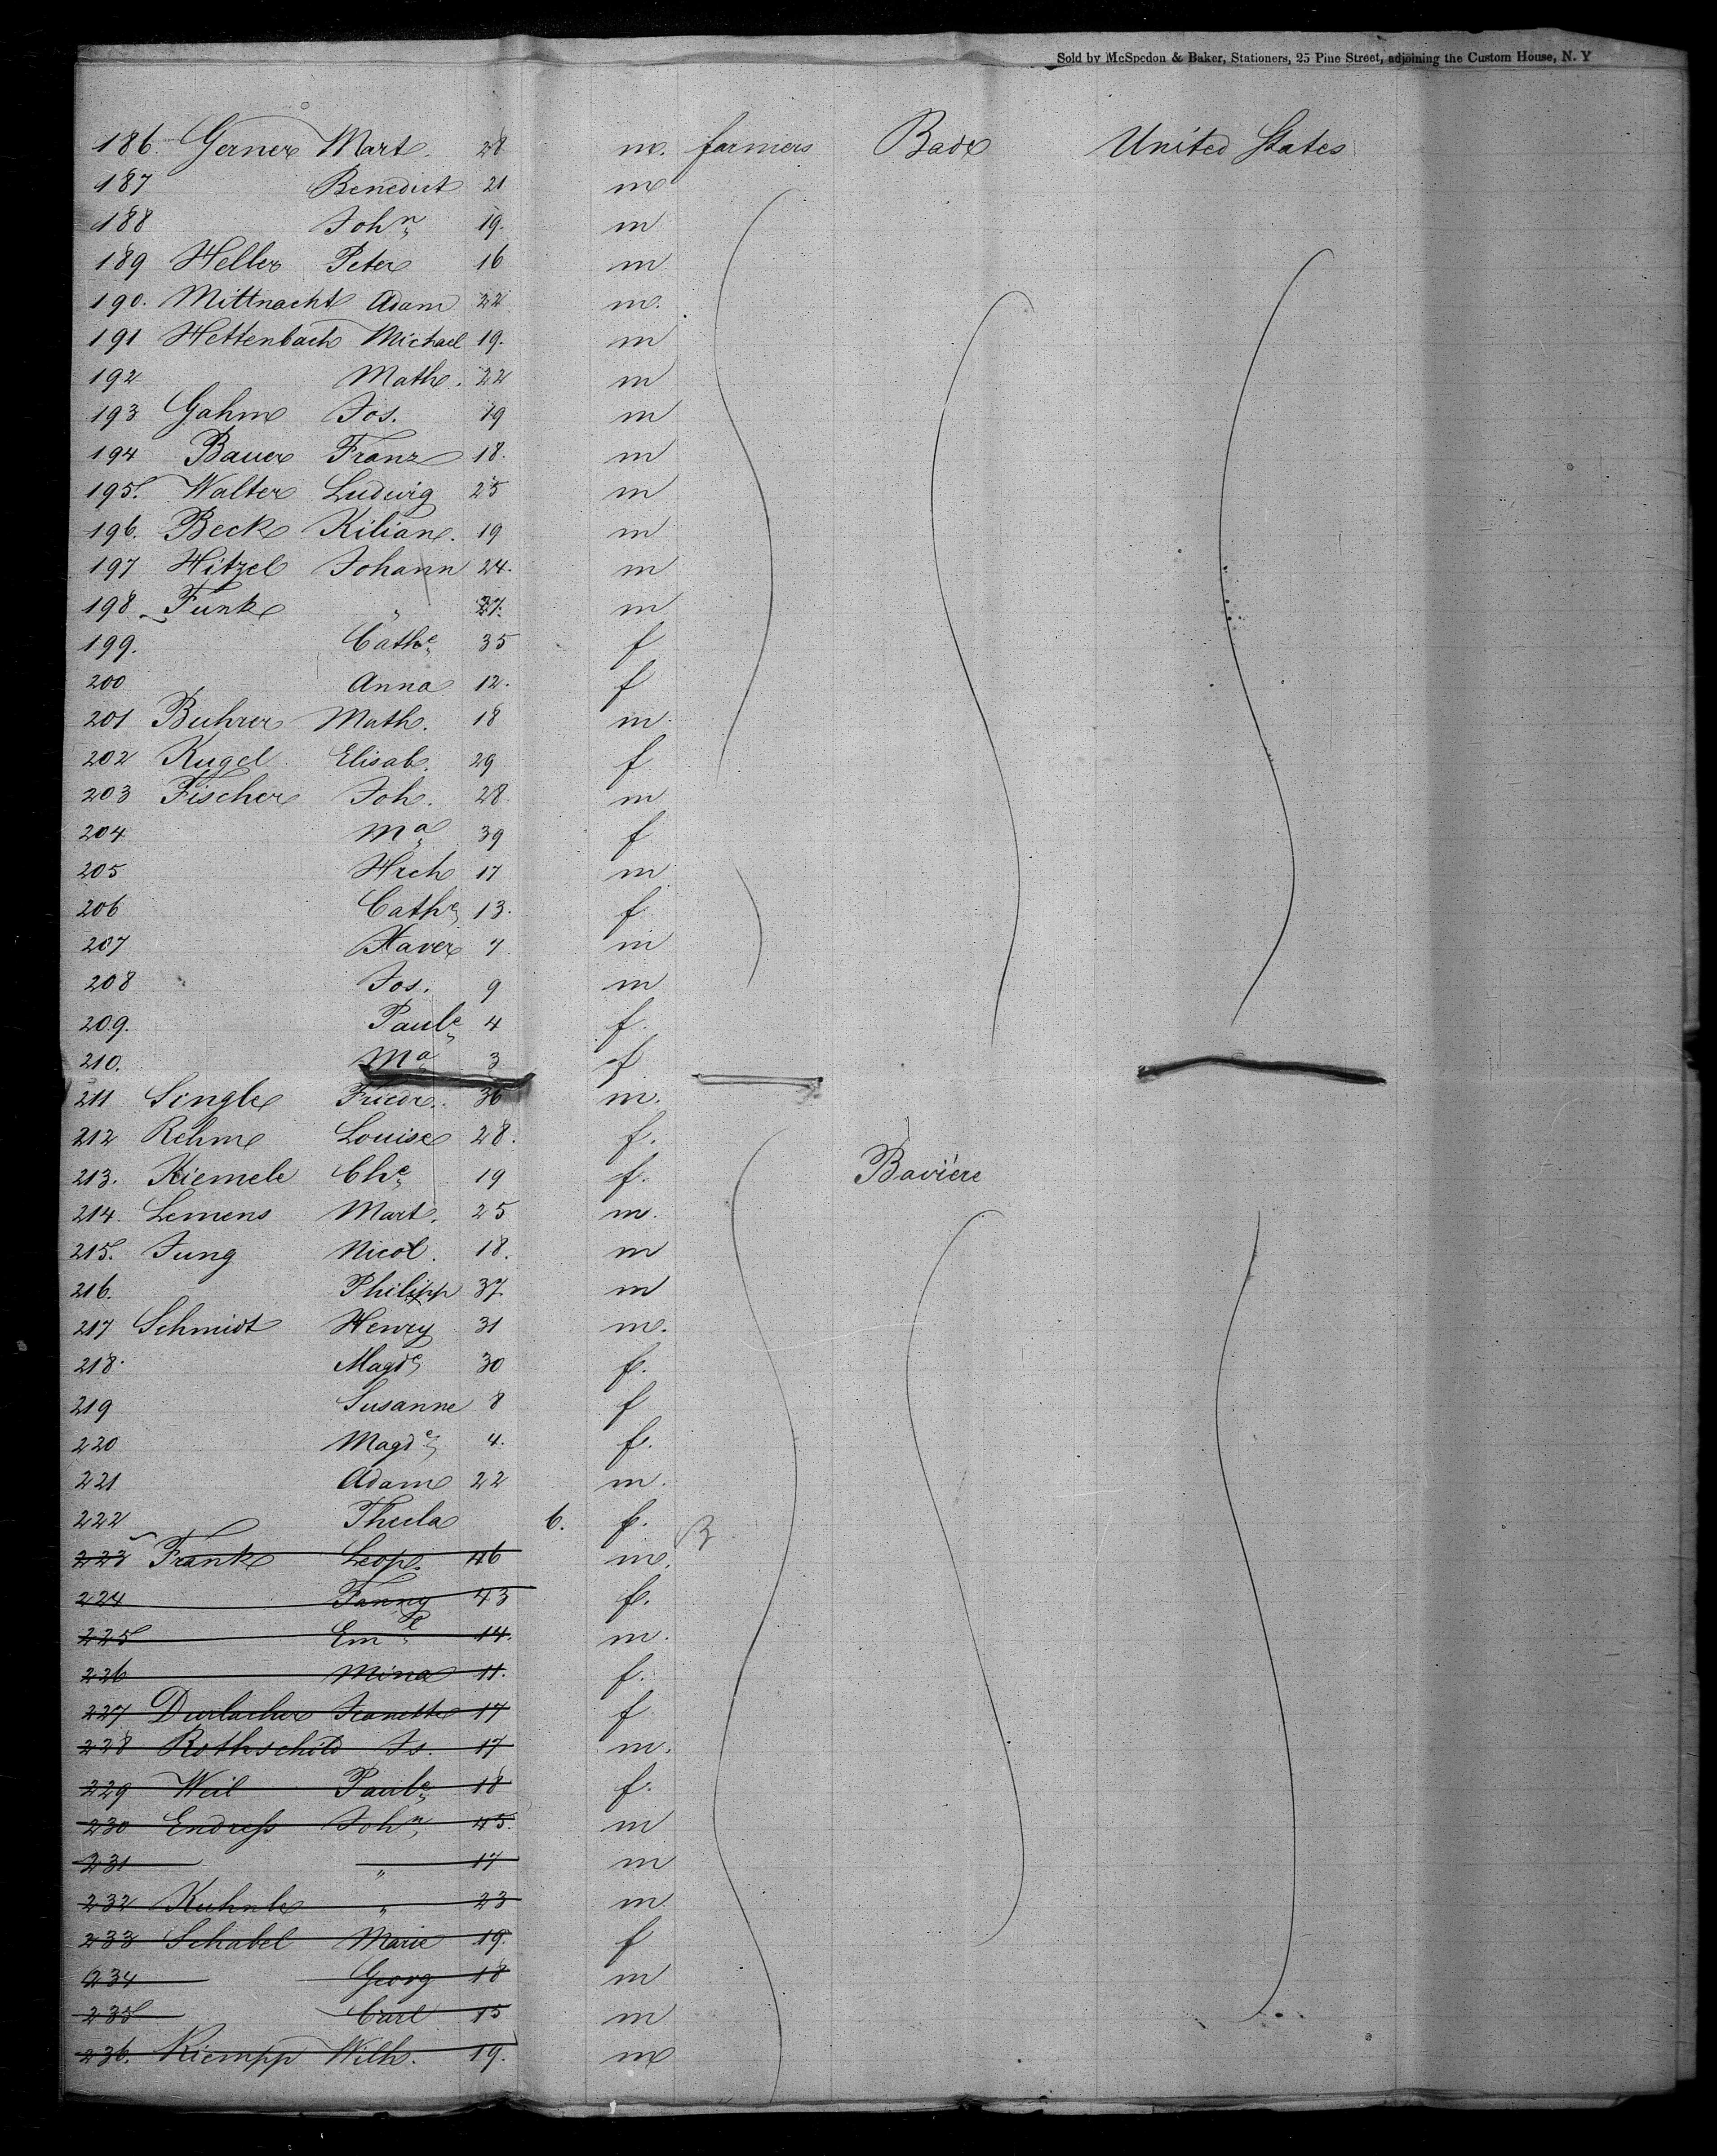 Sold by McSpedon & Baker, Stationers, 25 Pine Street, adjoining the Custom House, N. Y
186. Gerner Mart. 28 m. farmers Bade United States
187 Benedict 21 m
188 Johⁿ 19. m
189 Heller Peter 16 m
190. Mittnacht Adam 22 m.
191 Hettenbach Michael 19. m
192 Math. 22 m
193 Gahm Jos. 19 m
194 Bauer Franz 18. m
195. Walter Ludwig 25 m
196. Beck Kilian. 19 m
197 Hitzel Johann 24. m
198 Funk " 37. m
199. Cathe 35 f
200 Anna 12. f
201 Buhrer Math. 18 m.
202 Kugel Elisab. 29 f
203 Fischer Joh. 28. m
204 Ma 39 f
205 Hrch 17 m
206 Cathe 13. f
207 Xaver 7 m
208 Jos. 9 m
209. Paule 4 f.
210. Ma 3 f
211 Single Friedr. 36 m.
212 Rehm Louise 28. f.
213. Kiemele Che 19 f. Baviere
214. Lemens Mart. 25 m.
215. Jung Nicol. 18. m
216. Philipp 37 m
217 Schmidt Henry 31 m.
218. Magde 30 f.
219 Susanne 8 f
220 Magde 4. f.
221 Adam 22 m.
222 Thecla 6. f.
223 Frank Leop. 46 m.
224 Fanny 43 f.
225 Eml 14. m.
226 Mina 11. f.
227 Durlacher Jeanette 17 f
228 Rothschild Is. 17 m.
229 Weil Paule 18 f.
230 Endress Johⁿ 45. m
231 " 17 m
232 Kuhnle " 23 m
233 Schabel Marie 19. f
234 Georg 18 m
235 Carl 15 m
236. Kiempp Wilh. 19. m